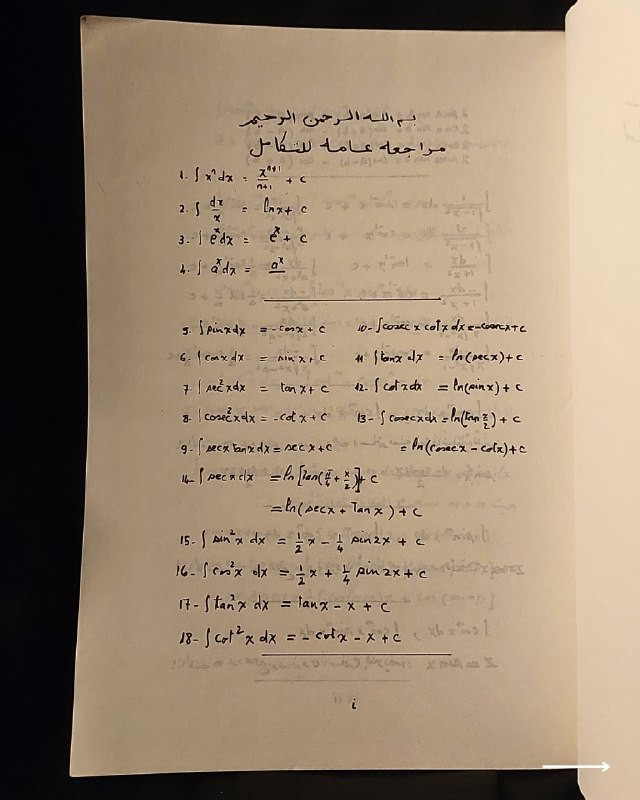 بسم الله الرحمن الرحيم
مراجعه عامه للتكامل
1. ∫ xⁿ dx = xⁿ⁺¹/n+1 + c
2. ∫ dx/x = ln x + c
3. ∫ eˣ dx = eˣ + c
4. ∫ aˣ dx = aˣ
5. ∫ sin x dx = -cos x + c
6. ∫ cos x dx = sin x + c
7. ∫ sec² x dx = tan x + c
8. ∫ cosec² x dx = -cot x + c
9- ∫ sec x tan x dx = sec x + c
10- ∫ cosec x cot x dx = -cosec x + c
11. ∫ tan x dx = ln(sec x) + c
12- ∫ cot x dx = ln(sin x) + c
13- ∫ cosec x dx = ln(tan x/2) + c
= ln(cosec x - cot x) + c
14- ∫ sec x dx = ln [tan(π/4 + x/2)] + c
= ln(sec x + Tan x) + c
15- ∫ sin² x dx = 1/2 x - 1/4 sin 2x + c
16- ∫ cos² x dx = 1/2 x + 1/4 sin 2x + c
17- ∫ tan² x dx = tan x - x + c
18- ∫ cot² x dx = - cot x - x + c
i